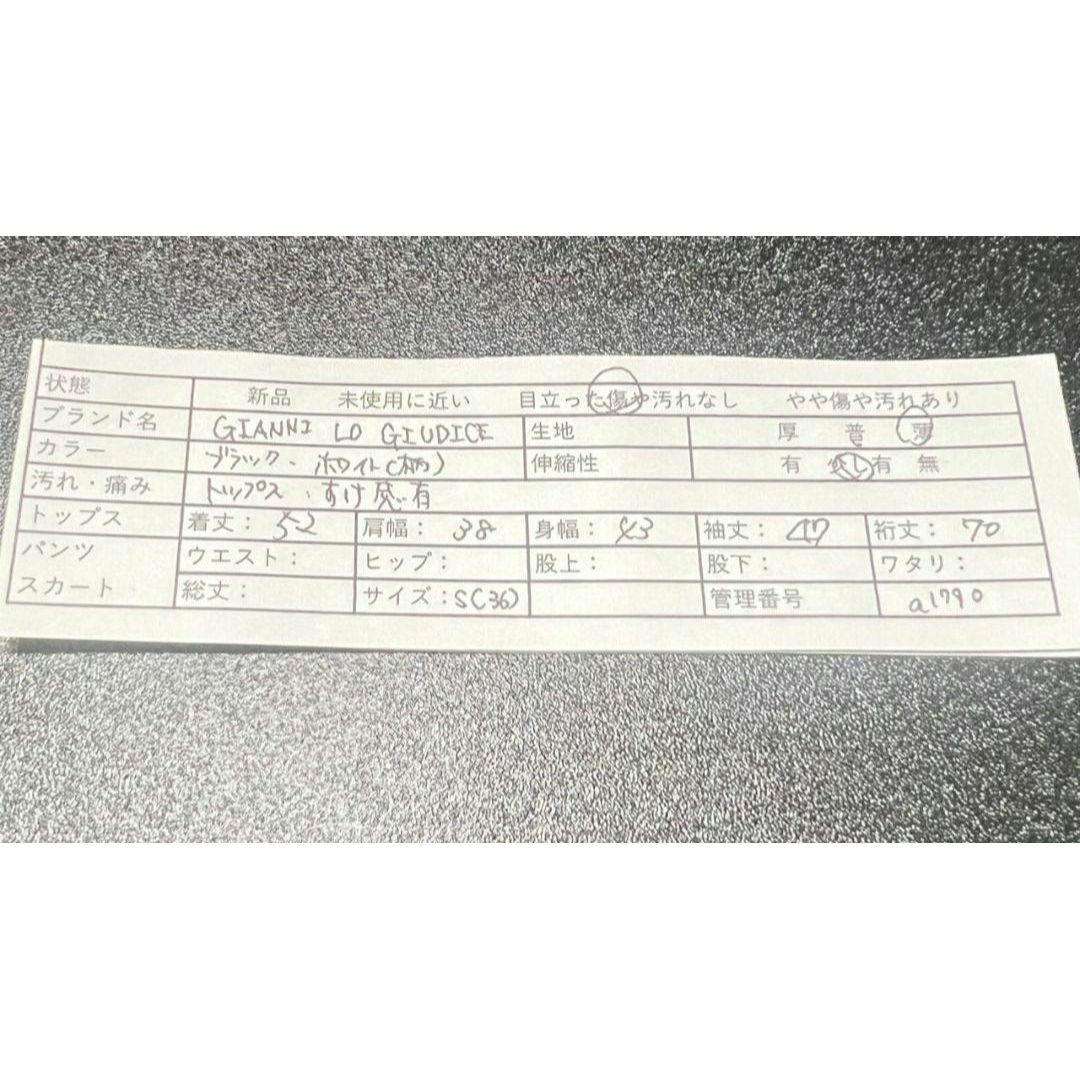 状態 新品 未使用に近い 目立った傷や汚れなし やや傷や汚れあり
ブランド名 GIANNI LO GIUDICE 生地 厚 普 薄
カラー ブラック・ホワイト(柄) 伸縮性 有 少し有 無
汚れ・痛み トップス、すけ感有
トップス 着丈：52 肩幅：38 身幅：43 袖丈：47 裄丈：70
パンツ ウエスト： ヒップ： 股上： 股下： ワタリ：
スカート 総丈： サイズ：S(36) 管理番号 a1790